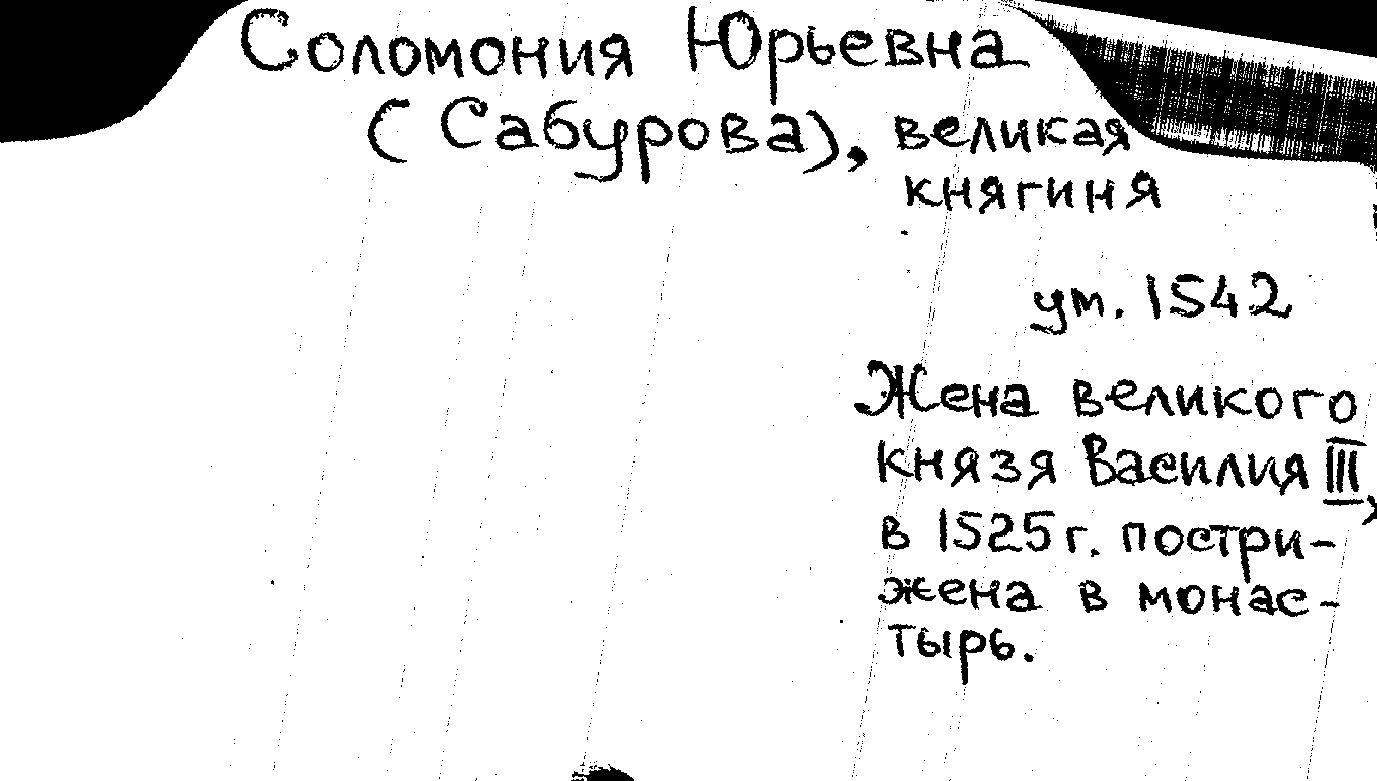 Соломония Юрьевна
(Сабурова), великая
княгиня
ум. 1542
Жена великого
князя Василия III,
в 1525 г. постри-
жена в монас-
тырь.